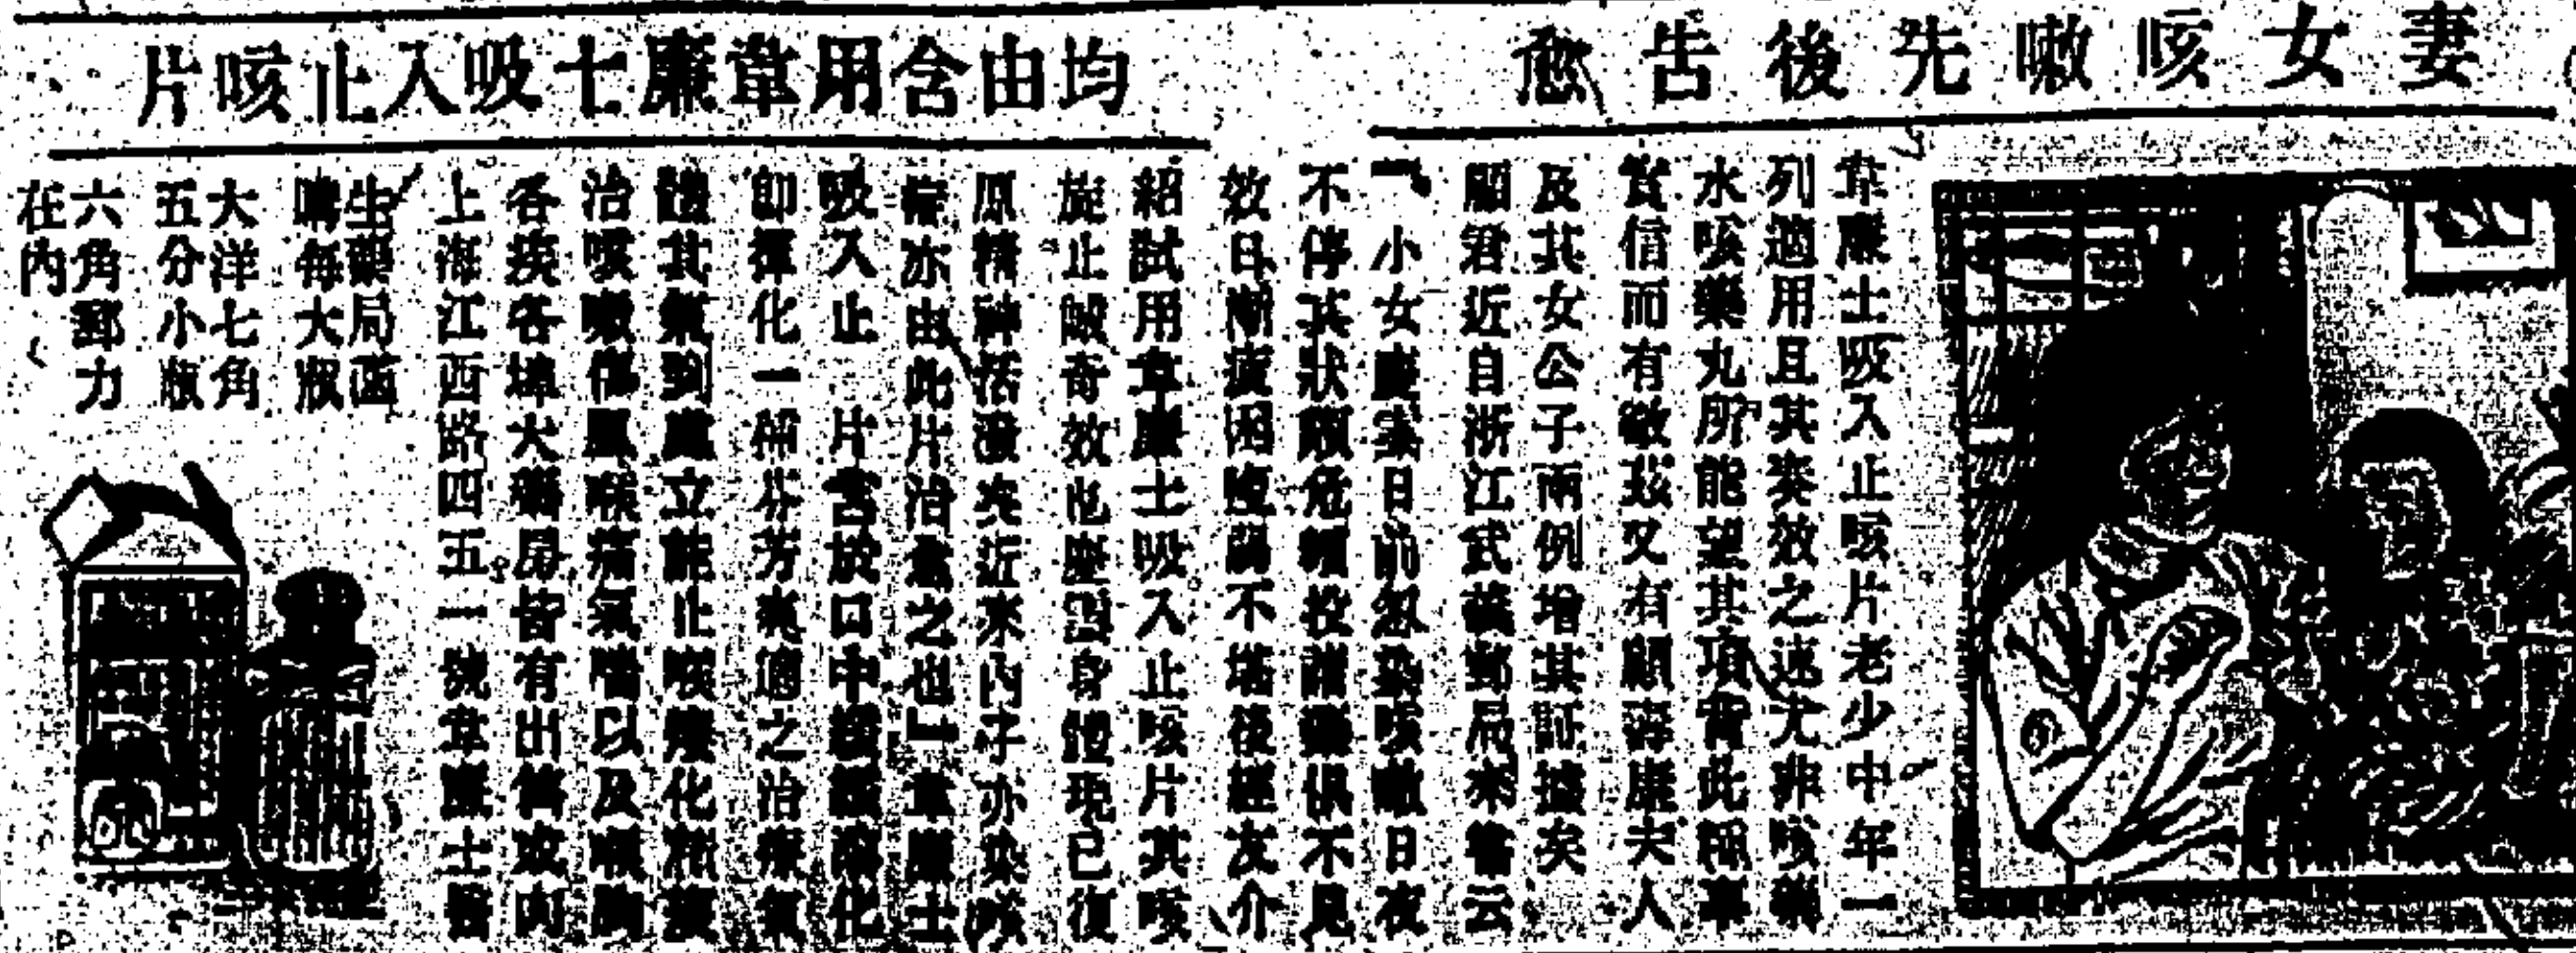 妻女咳嗽先後告愈
均由含用韋廉士吸入止咳片
韋廉士吸入止咳片老少中年一
列適用且其奏效之速尤非咳藥
水咳藥丸所能望其項背此編事
實信而有徵茲又有顧壽康夫人
及其女公子兩例增其証據矣
顧君近自浙江武義郵局來書云
「小女慶棻日前忽染咳嗽日夜
不停其狀頗危種投諸藥俱不見
效日漸疲困後經友介
紹試用韋廉士吸入止咳片其咳
旋止誠奇效也慶棻身體現已復
原精神活潑矣近來內子亦染咳
症亦由此片治愈之也」韋廉士
吸入止 片含於口中緩緩溶化
即揮化一種芬芳爽適之治療氣
體其氣到處立能止咳療化痰
治咳嗽傷風喉痛氣喘以及喉胸
各疾各埠大藥房皆有出售或向
上海江西路四五一號韋廉士醫
生藥局函
購每大瓶
大洋七角
五分小瓶
六角郵力
在內